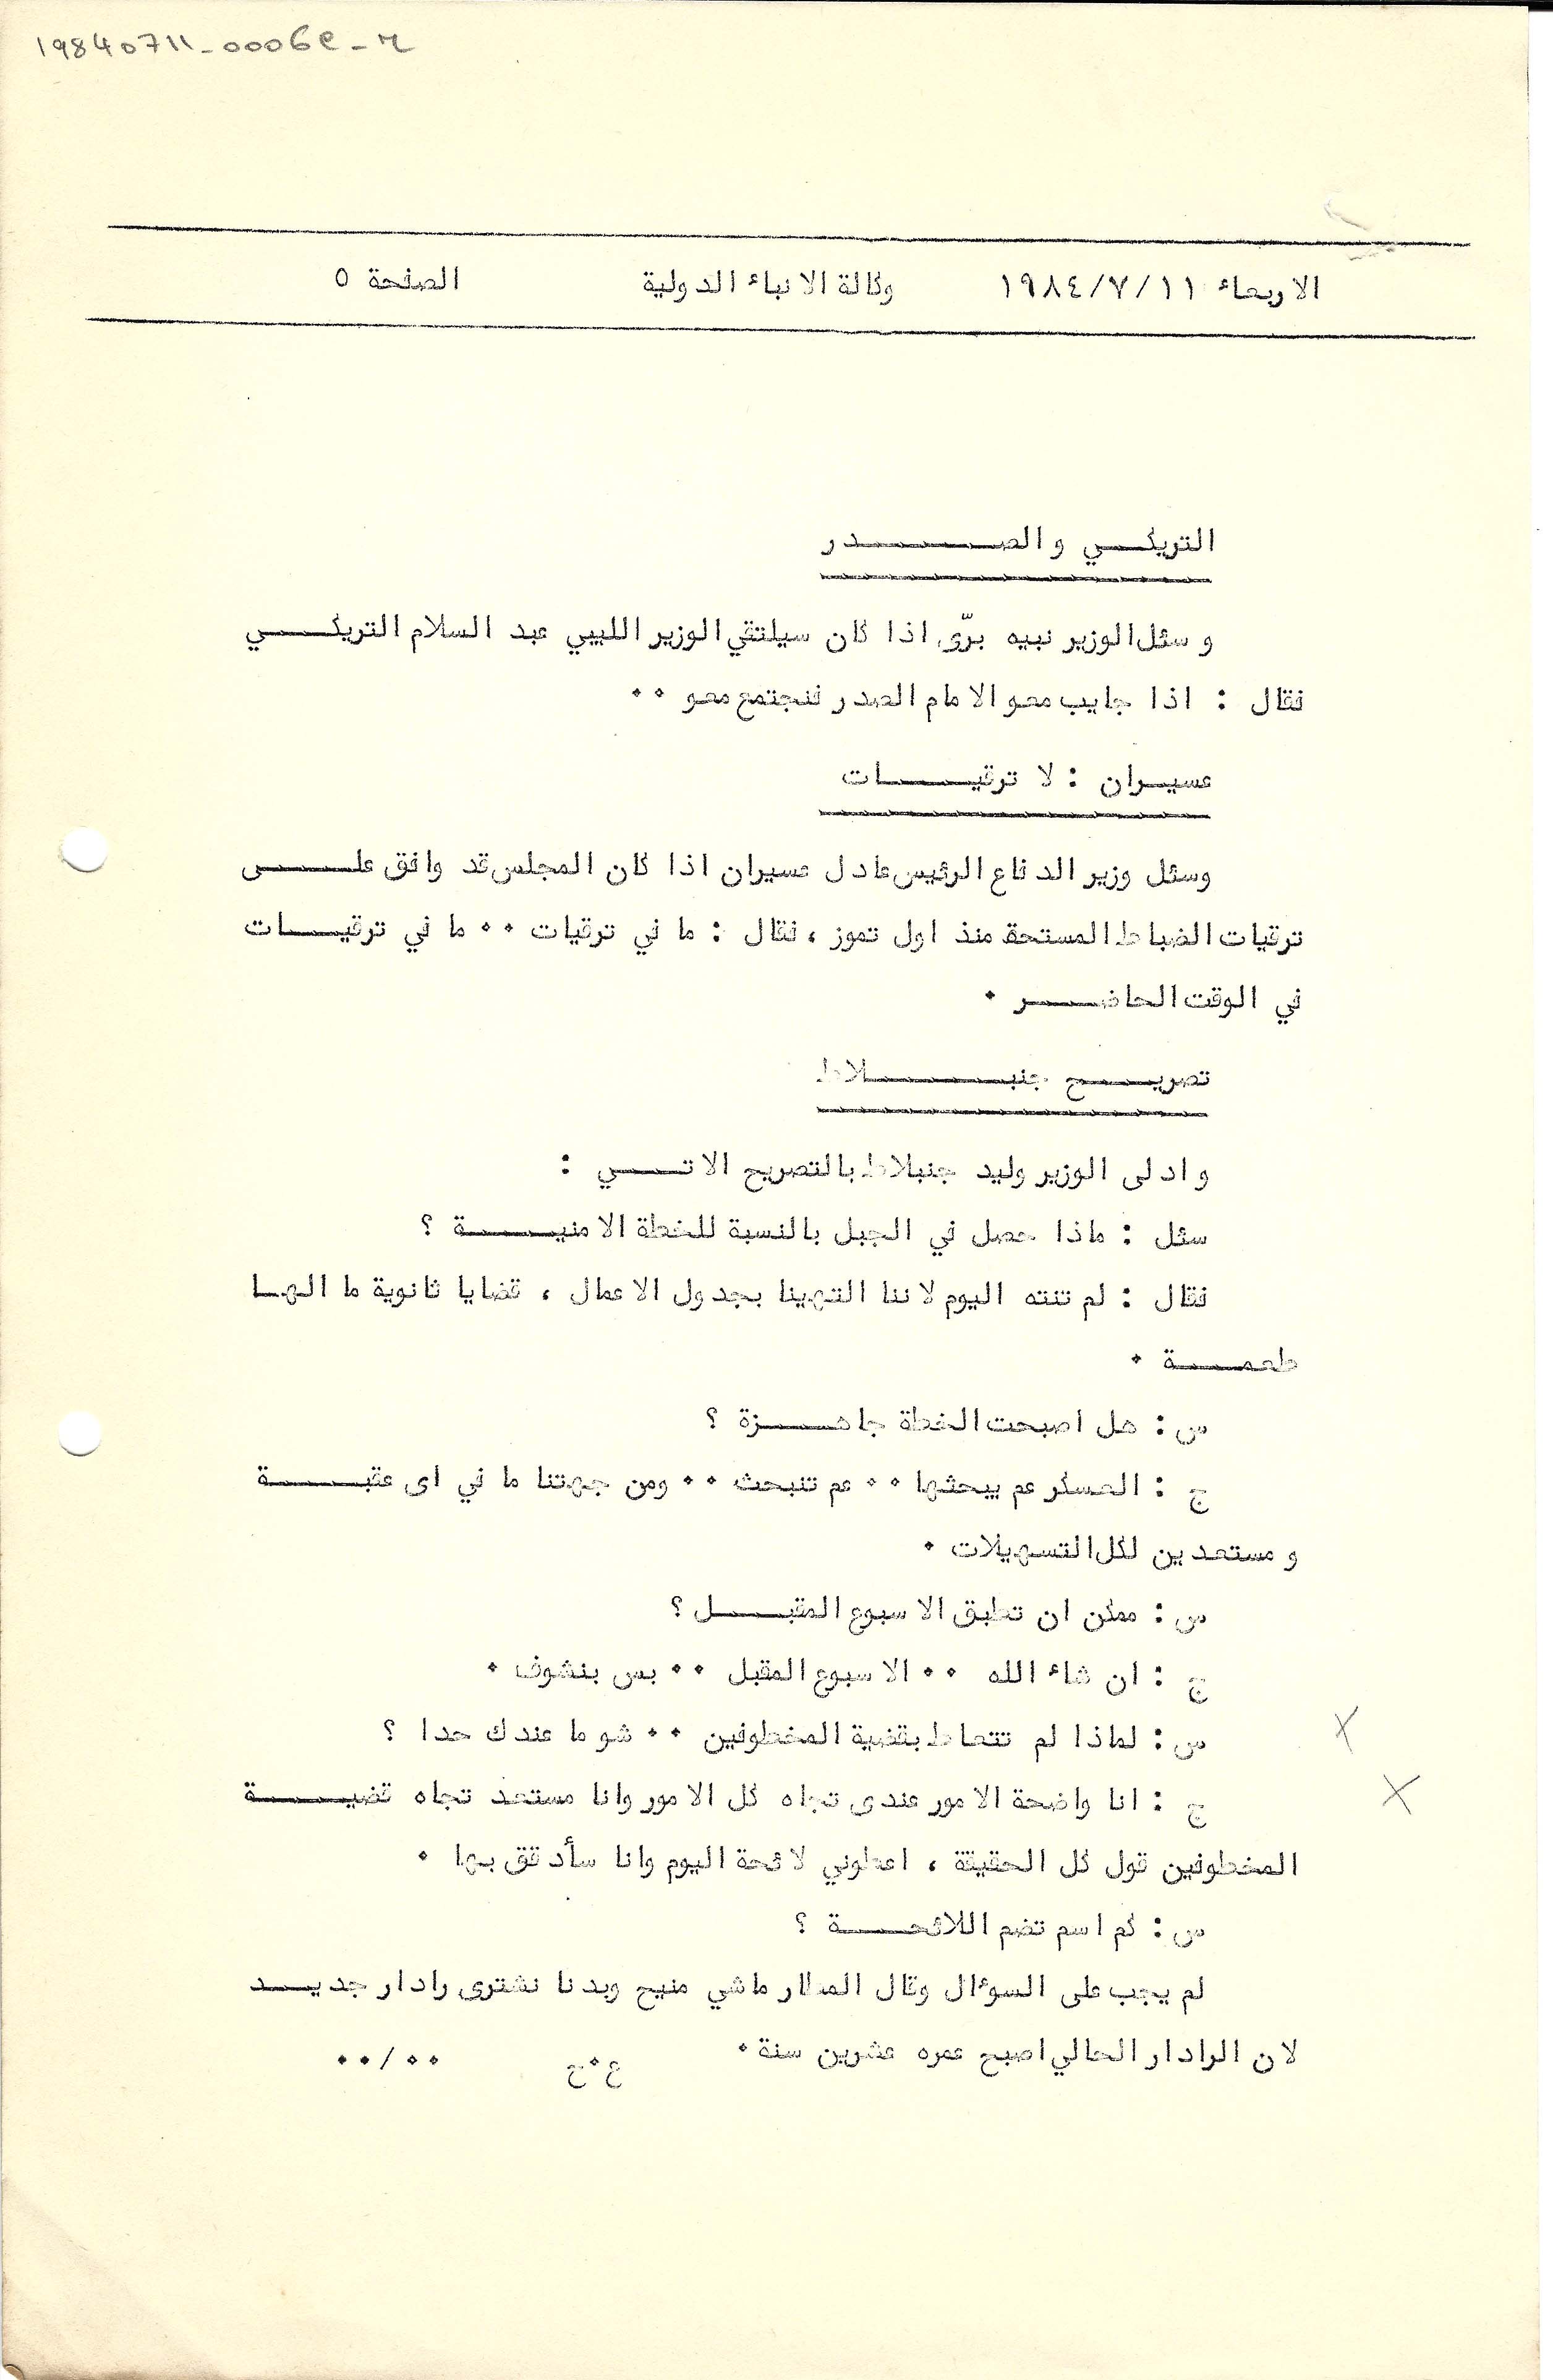 19840711-0006e-r
الاربعاء ١١/٧/١٩٨٤ وكالة الانباء الدولية الصفحة ٥
التريكي والصدر
وسئل الوزير نبيه برّى اذا كان سيلتقي الوزير الليبي عبد السلام التريكي
فقال : اذا جايب معو الامام الصدر فنجتمع معو ..
عسيران : لا ترقيات
وسئل وزير الدفاع الرئيس عادل عسيران اذا كان المجلس قد وافق على
ترقيات الضباط المستحقة منذ اول تموز ، فقال : ما في ترقيات .. ما في ترقيات
في الوقت الحاضر .
تصريح جنبلاط
وادلى الوزير وليد جنبلاط بالتصريح الاتي :
سئل : ماذا حصل في الجبل بالنسبة للخطة الامنية ؟
فقال : لم تنته اليوم لاننا التهينا بجدول الاعمال ، قضايا ثانوية ما الها
طعمة .
س : هل اصبحت الخطة جاهزة ؟
ج : العسكر عم يبحثها .. عم تنبحث .. ومن جهتنا ما في اى عقبة
ومستعدين لكل التسهيلات .
س : ممكن ان تطبق الاسبوع المقبل ؟
ج : ان شاء الله .. الاسبوع المقبل .. بس بنشوف .
س : لماذا لم تتعاط بقضية المخطوفين .. شو ما عندك حدا ؟
ج : انا واضحة الامور عندى تجاه كل الامور وانا مستعد تجاه قضية
المخطوفين قول كل الحقيقة ، اعطوني لائحة اليوم وانا سأدقق بها .
س : كم اسم تضم اللائحة ؟
لم يجب على السوءال وقال المطار ماشي منيح وبدنا نشترى رادار جديد
لان الرادار الحالي اصبح عمره عشرين سنة . ع.ح ../..